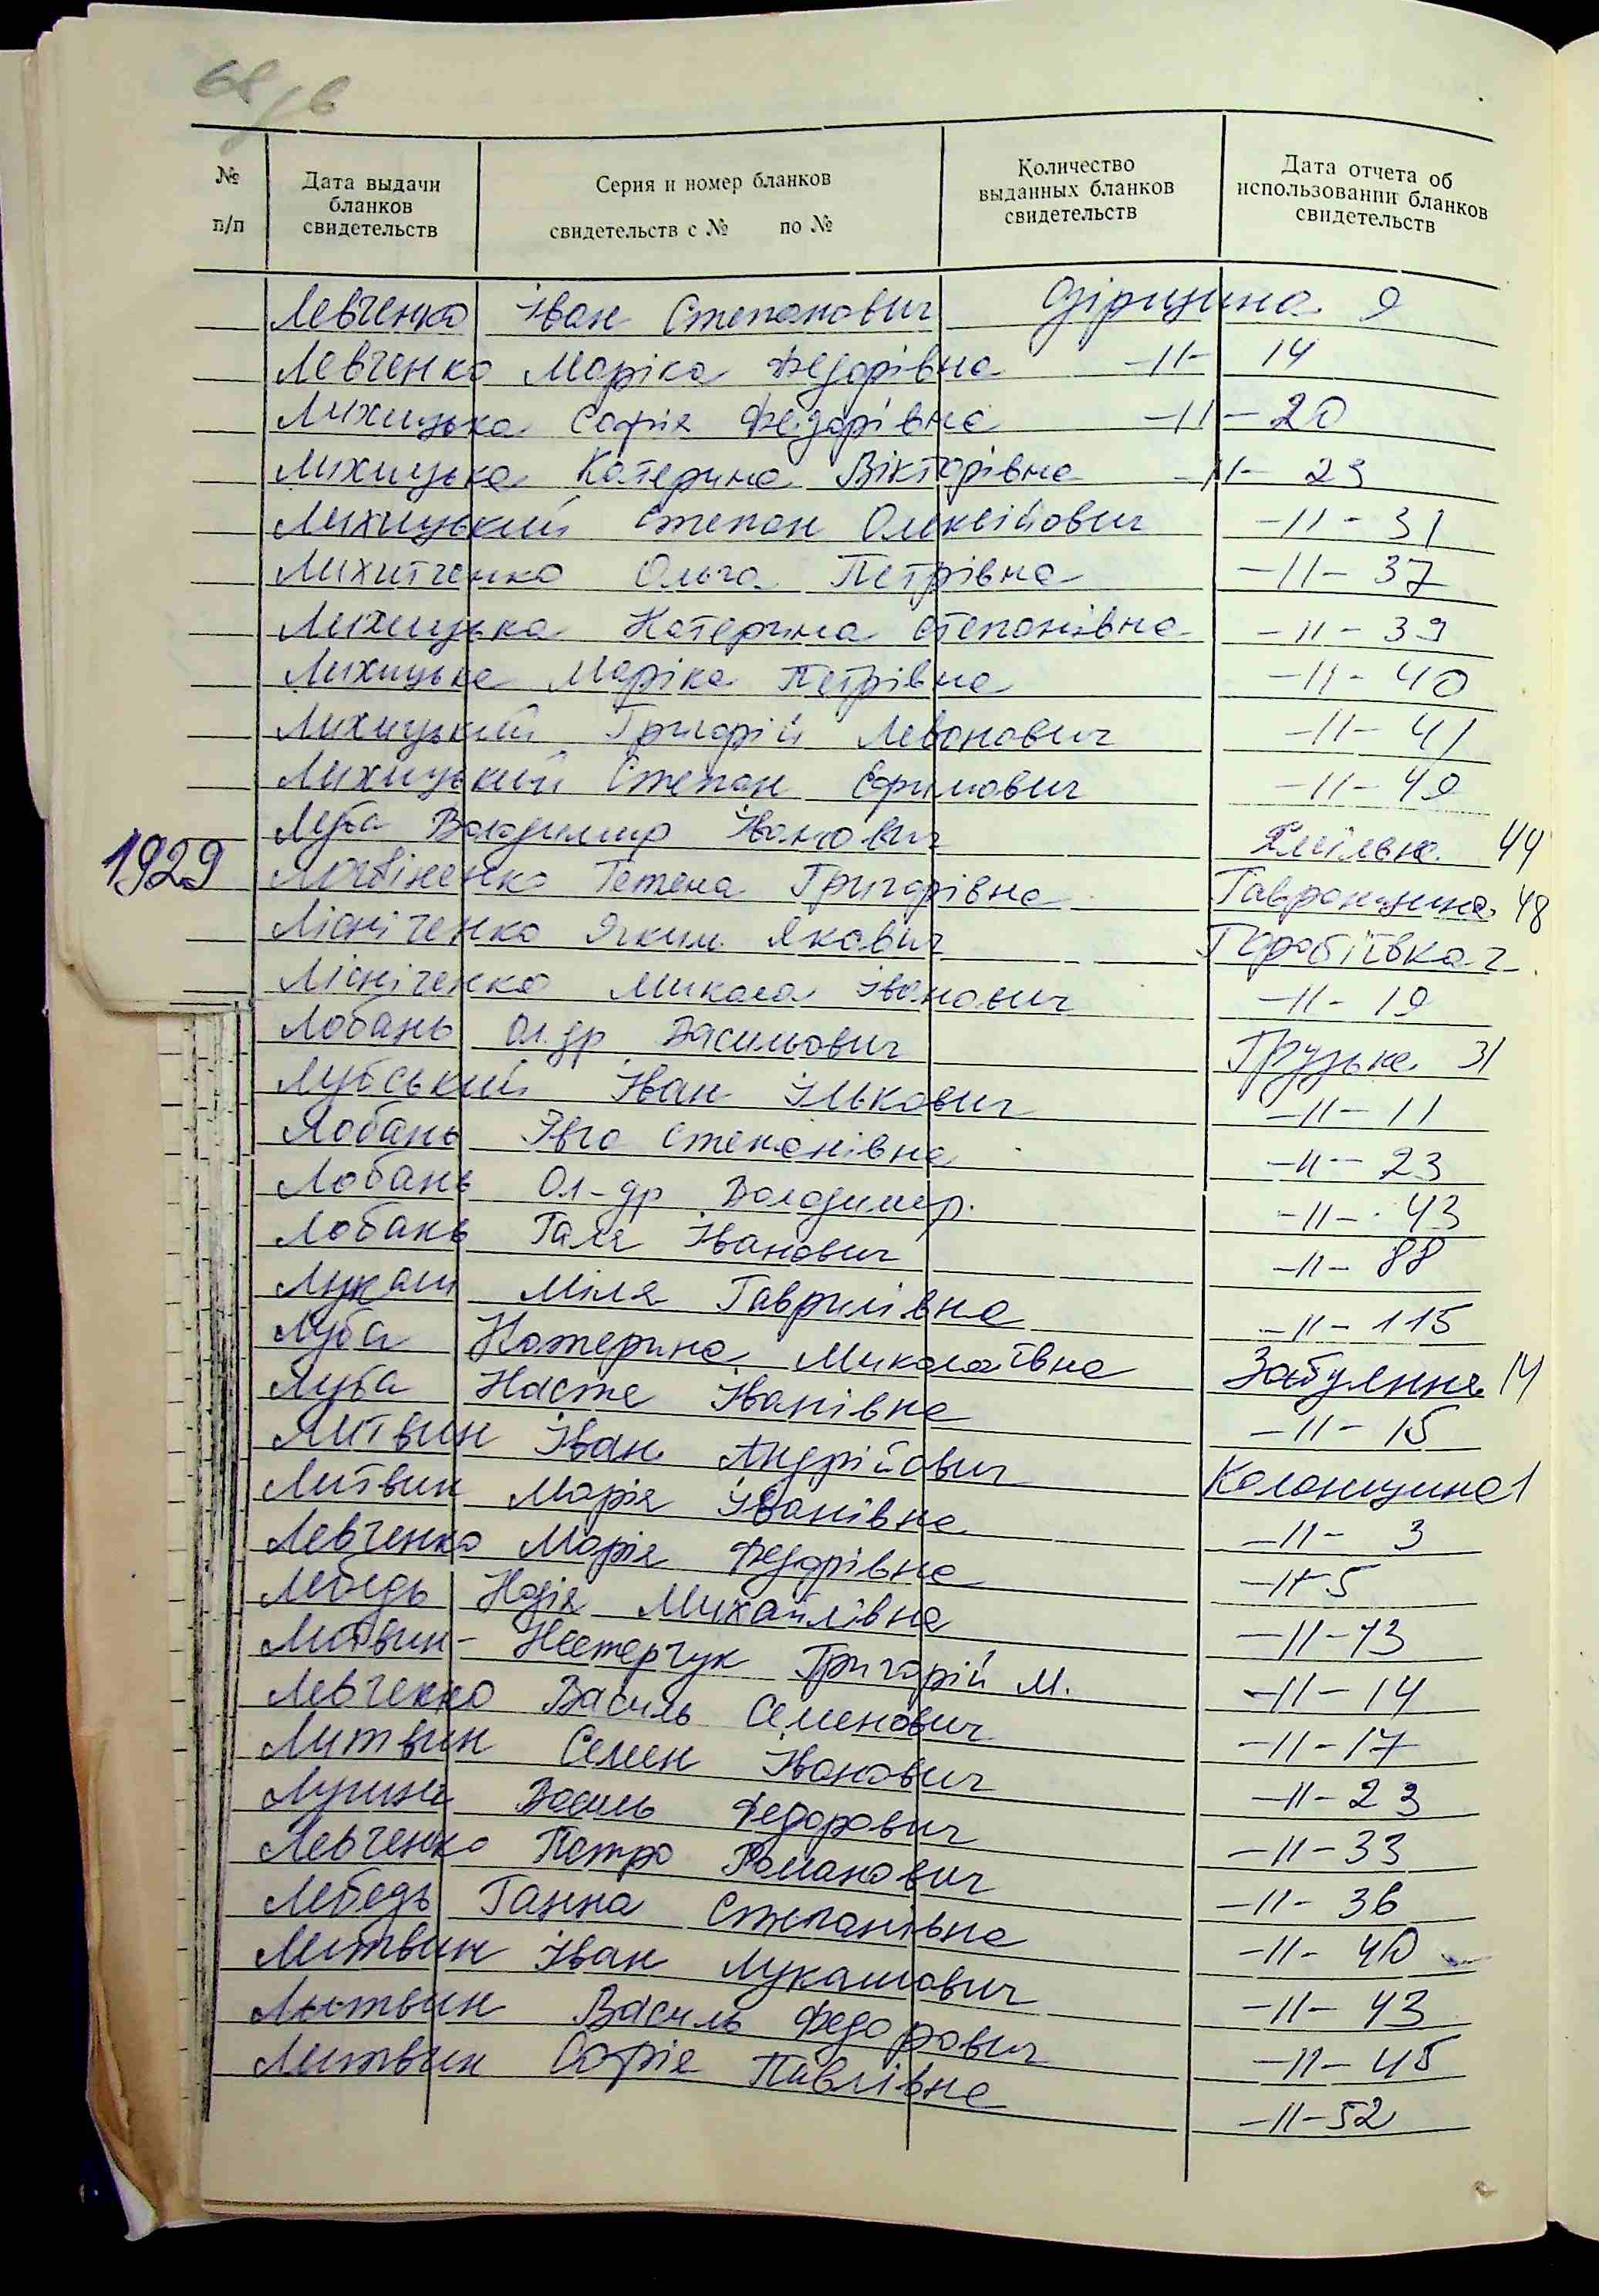 68/в
№ п/п
Дата выдачи бланков свидетельств
Серия и номер бланков свидетельств с № по №
Количество выданных бланков свидетельств
Дата отчета об использовании бланков свидетельств
Левченко Іван Степанович Діржина 9
Левченко Маріка Федорівна -11- 14
Лихицька Софія Федорівна -11- 20
Лихицька Катерина Вікторівна -11- 23
Лихицький Степан Олексійович -11- 31
Лихитченко Ольга Петрівна -11- 37
Лихицька Катерина Степанівна -11- 39
Лихицька Маріка Петрівна -11- 40
Лихицький Григорій Левонович -11- 41
Лихицький Степан Єфимович -11- 49
Луба Володимир Іванович Ямільне 44
1929 Логвіненко Тетена Григорівна Гавронщина 48
Лісніченко Яким Якович Горобіївка 2
Лісніченко Микола Іванович -11- 19
Лобань Ол.др Васильович Грузьке 31
Лубський Іван Ількович -11- 11
Лобань Івга Степанівна -11- 23
Лобань Ол-др Володимир. -11- 43
Лобань Галя Іванович -11- 88
Лукаш Міля Гаврилівна -11- 115
Луба Катерина Миколаївна Забуяння 14
Луба Настя Іванівна -11- 15
Литвин Іван Андрійович Колонщина 1
Литвин Марія Іванівна -11- 3
Левченко Марія Федорівна -11- 5
Лебедь Надія Михайлівна -11- 13
Литвин- Нестерчук Григорій М. -11- 14
Левченко Василь Семенович -11- 17
Литвин Семен Іванович -11- 23
Василь Федорович -11- 33
Левченко Петро Романович -11- 36
Лебедь Ганна Степанівна -11- 40
Литвин Іван Лукашович -11- 43
Литвин Василь Федорович -11- 45
Литвин Софія Павлівна -11- 52